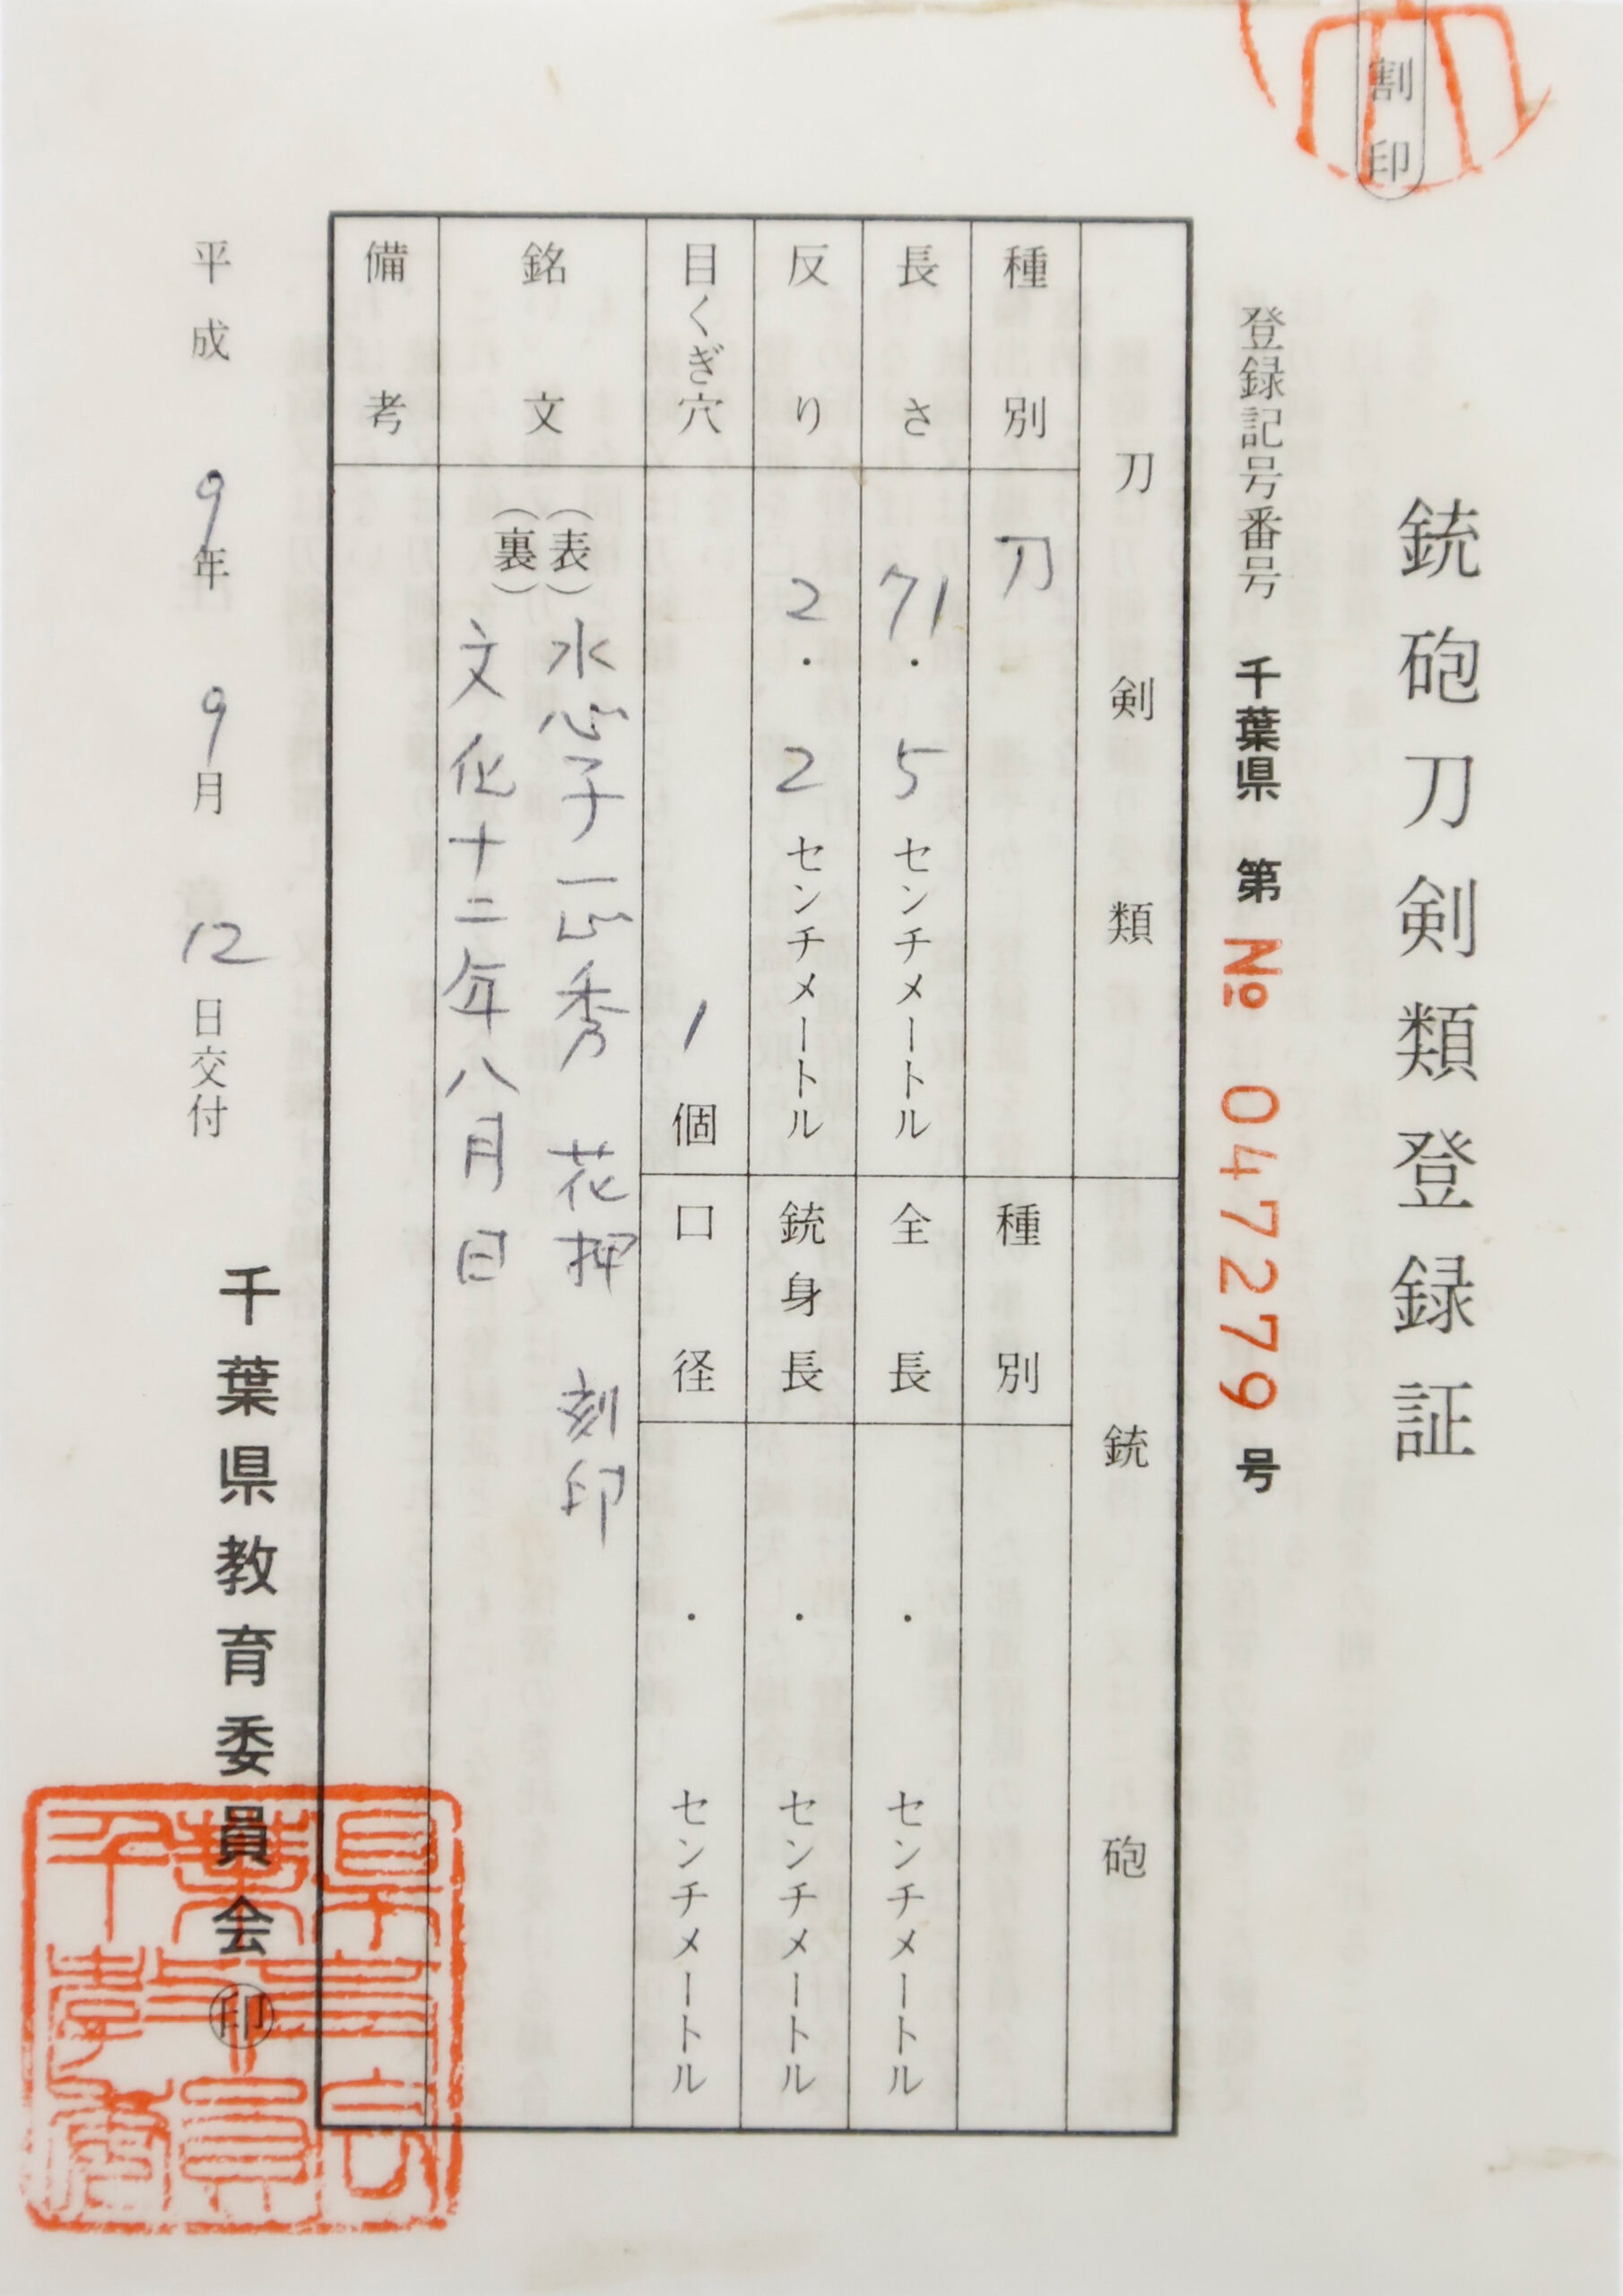 割印
銃砲刀剣類登録証
登録記号番号 千葉県 第 № 047279 号
刀剣類
種別 刀
長さ 71.5センチメートル
反り 2.2センチメートル
目くぎ穴 1個
銘文 (表) 水心子正秀 花押 刻印
(裏) 文化十二年八月日
備考
銃砲
種別
全長 . センチメートル
銃身長 . センチメートル
口径 . センチメートル
平成9年9月12日交付
千葉県教育委員会㊞